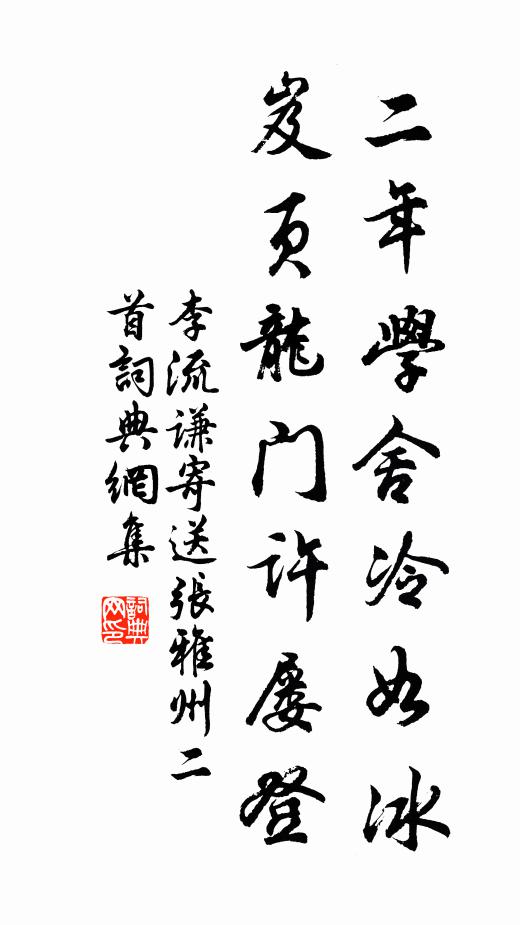 二年學舍冷如冰
岌頁龍門許屡登
李流谦寄送張雅州二
首詞典網集
詞典
网印